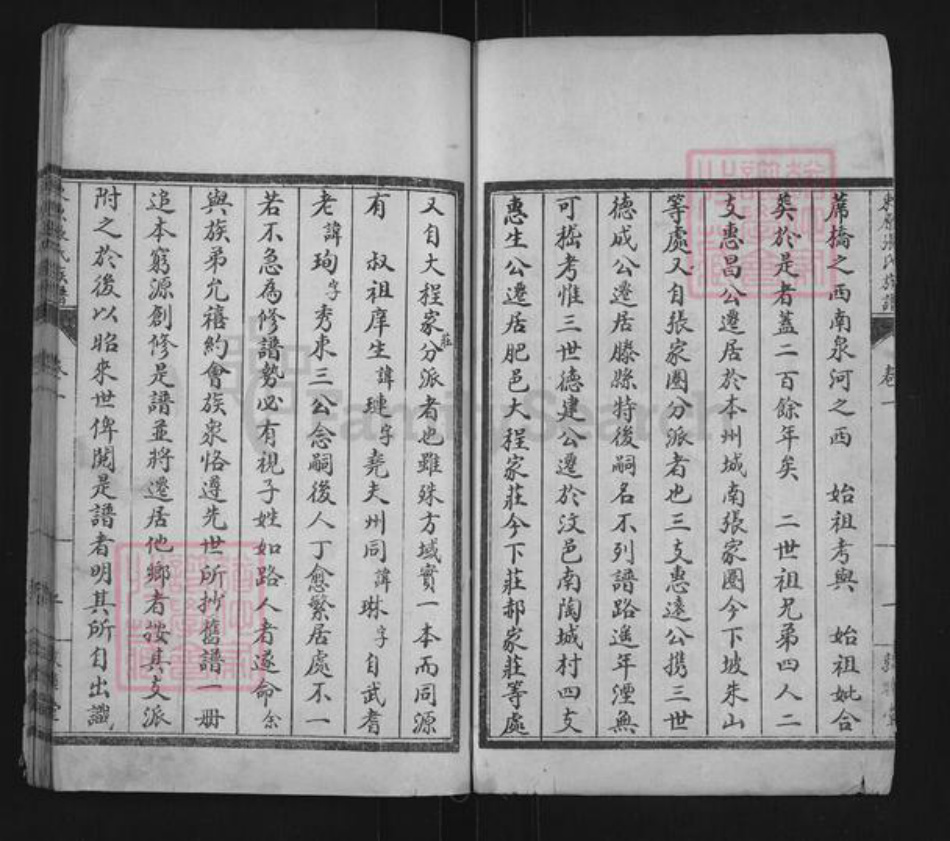 東原張氏族譜
卷一
蓆橋之西南泉河之西　始祖考與　始祖妣合
葬於是者蓋二百餘年矣　二世祖兄弟四人二
支惠昌公遷居於本州城南張家圈今下坡朱山
等處又自張家圈分派者也三支惠遠公携三世
德成公遷居滕縣特後嗣名不列譜路遙年湮無
可稽考惟三世德建公遷於汶邑南陶城村四支
惠生公遷居肥邑大程家莊今下莊郝家莊等處
又自大程家莊分派者也雖殊方域實一本而同源
有　叔祖庠生諱璉字堯夫州同諱琳字自武耆
老諱珣字秀東三公念嗣後人丁愈繁居處不一
若不急為修譜勢必有視子姓如路人者遂命余
與族弟允禧約會族衆恪遵先世所抄舊譜一冊
追本窮源創修是譜並將遷居他鄉者按其支派
附之於後以昭來世俾閱是譜者明其所自出識
FamilySearch